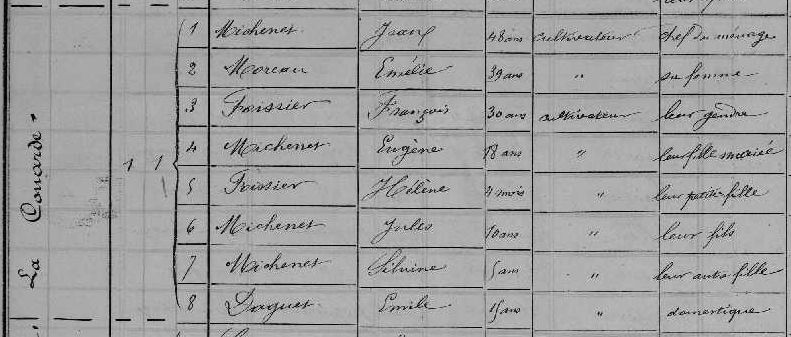 La Couarde
1 1
1 Michenet Jean 48 ans cultivateur chef de ménage
2 Moreau Emélie 39 ans " sa femme
3 Foissier François 30 ans cultivateur leur gendre
4 Michenet Eugène 18 ans " leur fille mariée
5 Foissier Hélène 4 mois " leur petite fille
6 Michenet Jules 10 ans " leur fils
7 Michenet Silvine 5 ans " leur autre fille
8 Daguet Emile 15 ans " domestique